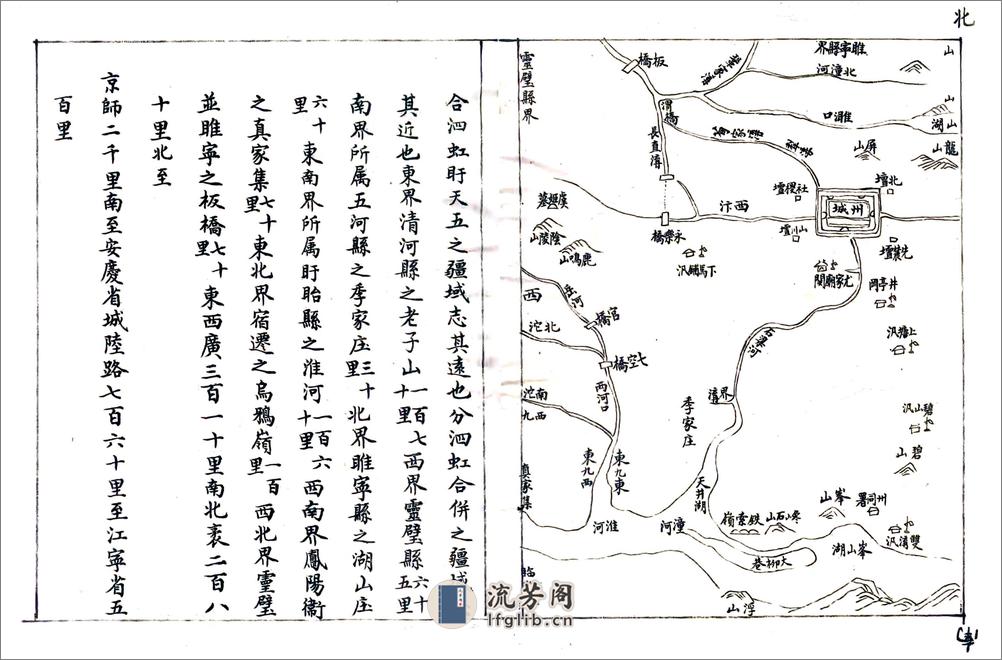 北
睢寧縣界
北潼河
山
板橋
靈璧縣界
渭橋
長直溝
睢口
山
山湖
龍山
屏山
社稷壇
北壇
州城
西汴
山川壇
先農壇
永樂橋
虞姬墓
陰陵山
鹿鳴山
下馬鋪汛
尤家廟閘
井亭岡
石梁河
西
北沱
官橋
七空橋
上塘汛
南沱
西九
西河口
界溝
季家庄
碧山汛
碧山
真家集
東九西
東九東
天井湖
淮河
潼河
鉄索嶺
寒石山
峯山
州同署
雙溝汛
峯山湖
大柳巷
浮山
合泗虹盱天五之疆域志其遠也分泗虹合併之疆域
其近也東界清河縣之老子山一百七十里西界靈璧縣六十五里
南界所属五河縣之季家庄三十里北界睢寧縣之湖山庄
六十里東南界所属盱眙縣之淮河一百六十里西南界鳳陽衞
之真家集七十里東北界宿遷之烏鴉嶺一百里西北界靈璧
並睢寧之板橋七十里東西廣三百一十里南北袤二百八
十里北至
京師二千里南至安慶省城陸路七百六十里至江寧省五
百里
流芳阁
lfglib.cn